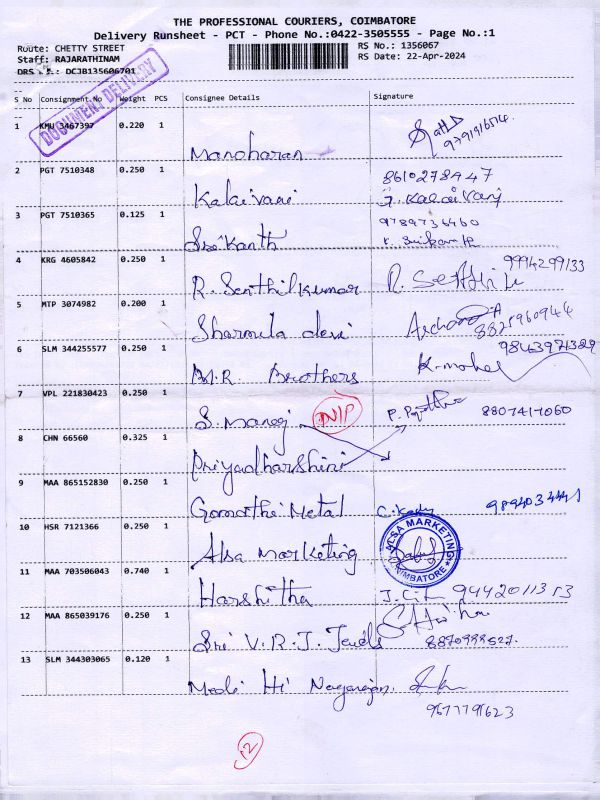 THE PROFESSIONAL COURIERS, COIMBATORE
Delivery Runsheet - PCT - Phone No.:0422-3505555 - Page No.:1
Route: CHETTY STREET RS No.: 1356067
Staff: RAJARATHINAM RS Date: 22-Apr-2024
DRS No.: DCJB135606701
DOCUMENT DELIVERY
S No Consignment.No Weight PCS Consignee Details Signature
1 KMU 3467397 0.220 1 Manoharan
2 PGT 7510348 0.250 1 Kalaivani 8610278947
J. Kalaivani
3 PGT 7510365 0.125 1 Srikanth 9789736460
4 KRG 4605842 0.250 1 R. Senthilkumar 9994299133
5 MTP 3074982 0.200 1 Sharmila devi 8825960944
6 SLM 344255577 0.250 1 M.R. Brothers K. mohan 9843971389
7 VPL 221830423 0.250 1 S. Manoj
8 CHN 66560 0.325 1 Priyadharshini
9 MAA 865152830 0.250 1 Gomathi Metal
10 HSR 7121366 0.250 1 Alsa Marketing ALSA MARKETING COIMBATORE
11 MAA 703506043 0.740 1 Harshitha
12 MAA 865039176 0.250 1 Sri V.R.J.
13 SLM 344303065 0.120 1 Nagarajan
12